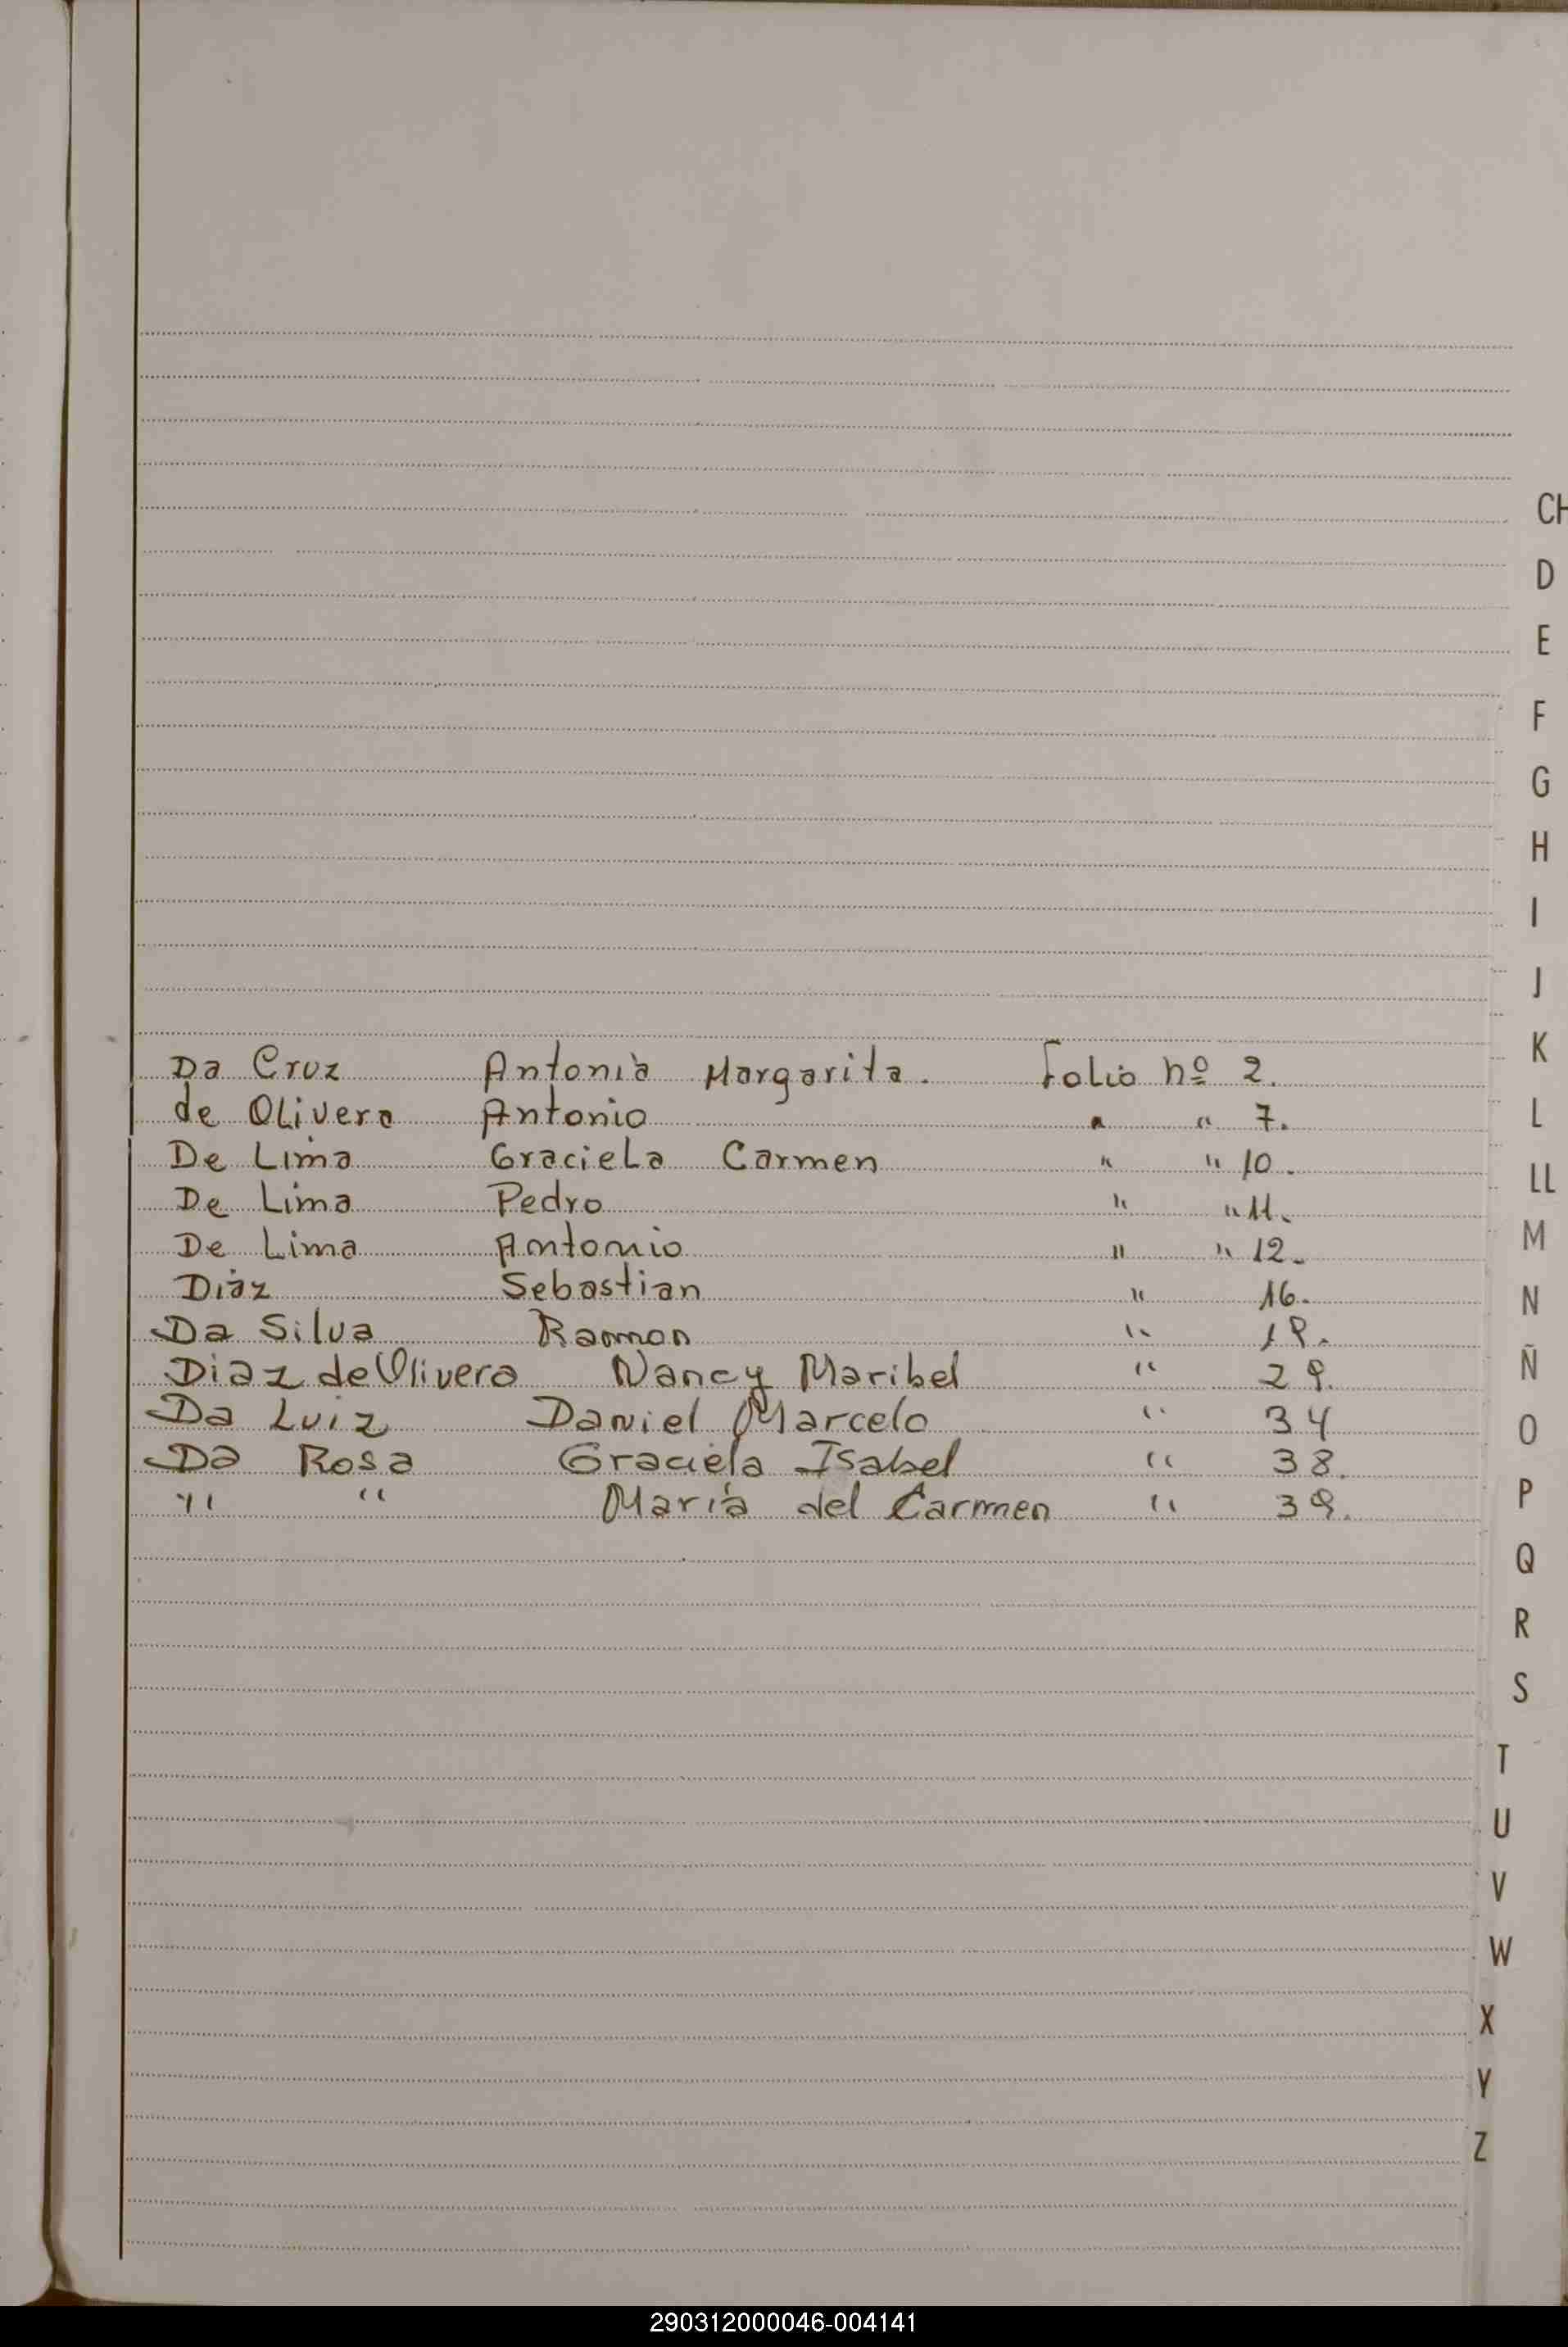 Da Cruz Antonia Margarita. Folio nº 2.
de Olivera Antonio " " 7.
De Lima Graciela Carmen " " 10.
De Lima Pedro " " 11.
De Lima Antonio " " 12.
Diáz Sebastian " 16.
Da Silva Ramon " 19.
Diaz de Olivera Nancy Maribel " 29.
Da Luiz Daniel Marcelo " 34
Da Rosa Graciela Isabel " 38.
" " María del Carmen " 39.
CH
D
E
F
G
H
I
J
K
L
LL
M
N
Ñ
O
P
Q
R
S
T
U
V
W
X
Y
Z
290312000046-004141